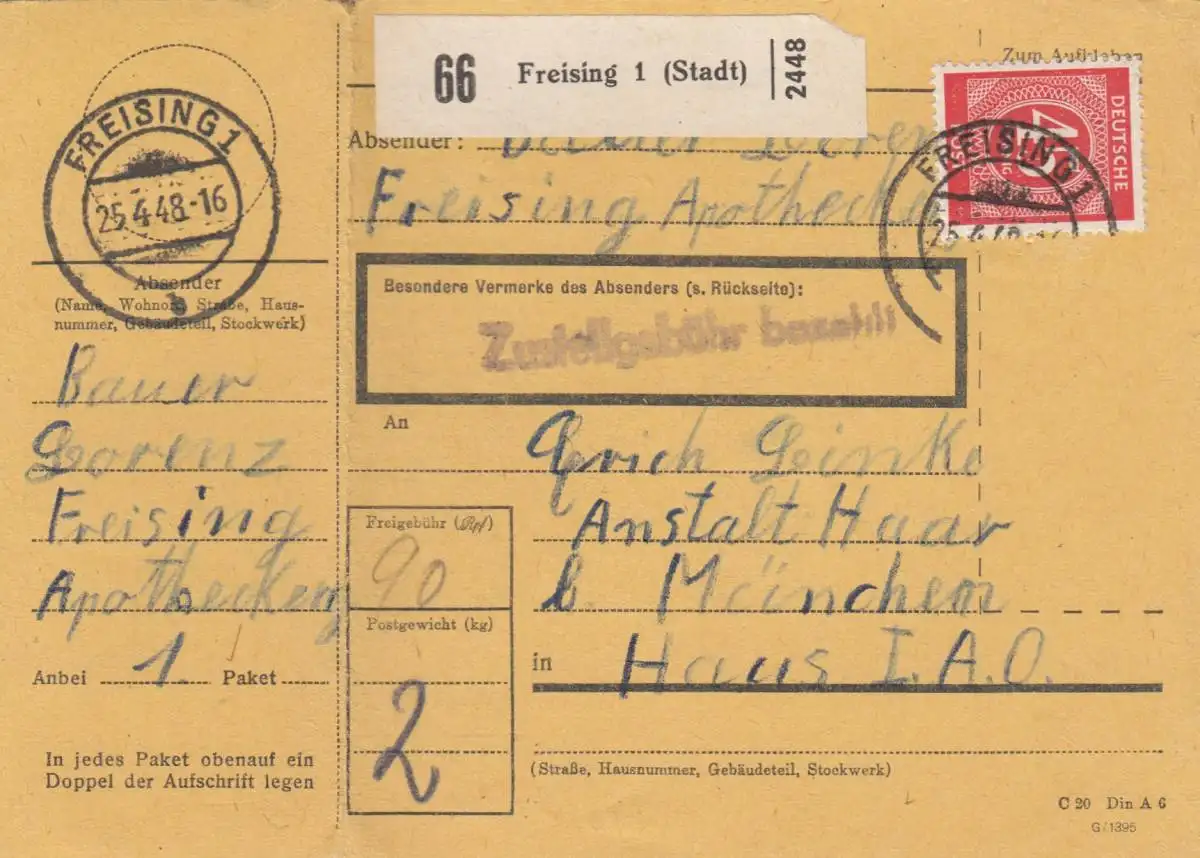 66 Freising 1 (Stadt) 2448
Zum Aufkleben
DEUTSCHE
FREISING 1
25.4.48.-16
b
FREISING 1
Absender: Bauer Loren
Freising Apothecke
Absender
(Name, Wohnort, Straße, Haus-
nummer, Gebäudeteil, Stockwerk)
Bauer
Lorenz
Freising
Apotheckeng
Anbei 1. Paket
In jedes Paket obenauf ein
Doppel der Aufschrift legen
Besondere Vermerke des Absenders (s. Rückseite):
Zustellgebühr bezahlt
An Erich Leinke
Anstalt Haar
b. München
in Haus I.A.O.
(Straße, Hausnummer, Gebäudeteil, Stockwerk)
Freigebühr (Rpf)
90
Postgewicht (kg)
2
C 20 Din A 6
G/1395